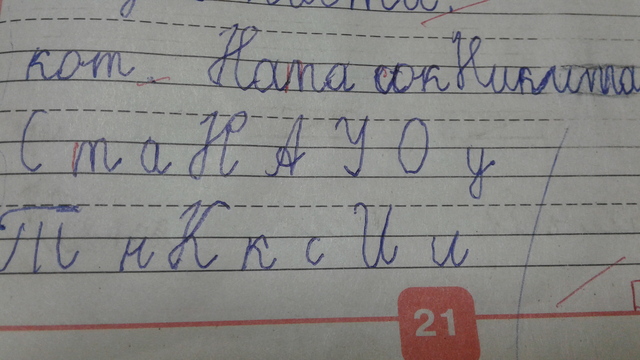 кот Ната сок Никита
С т а Н А У О у
Т н К к с И и
21